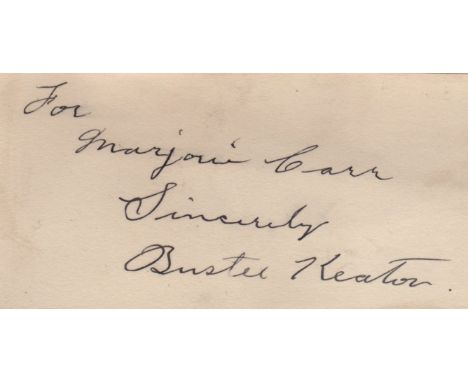 For
Marjorie Carr
Sincerely
Buster Keaton.